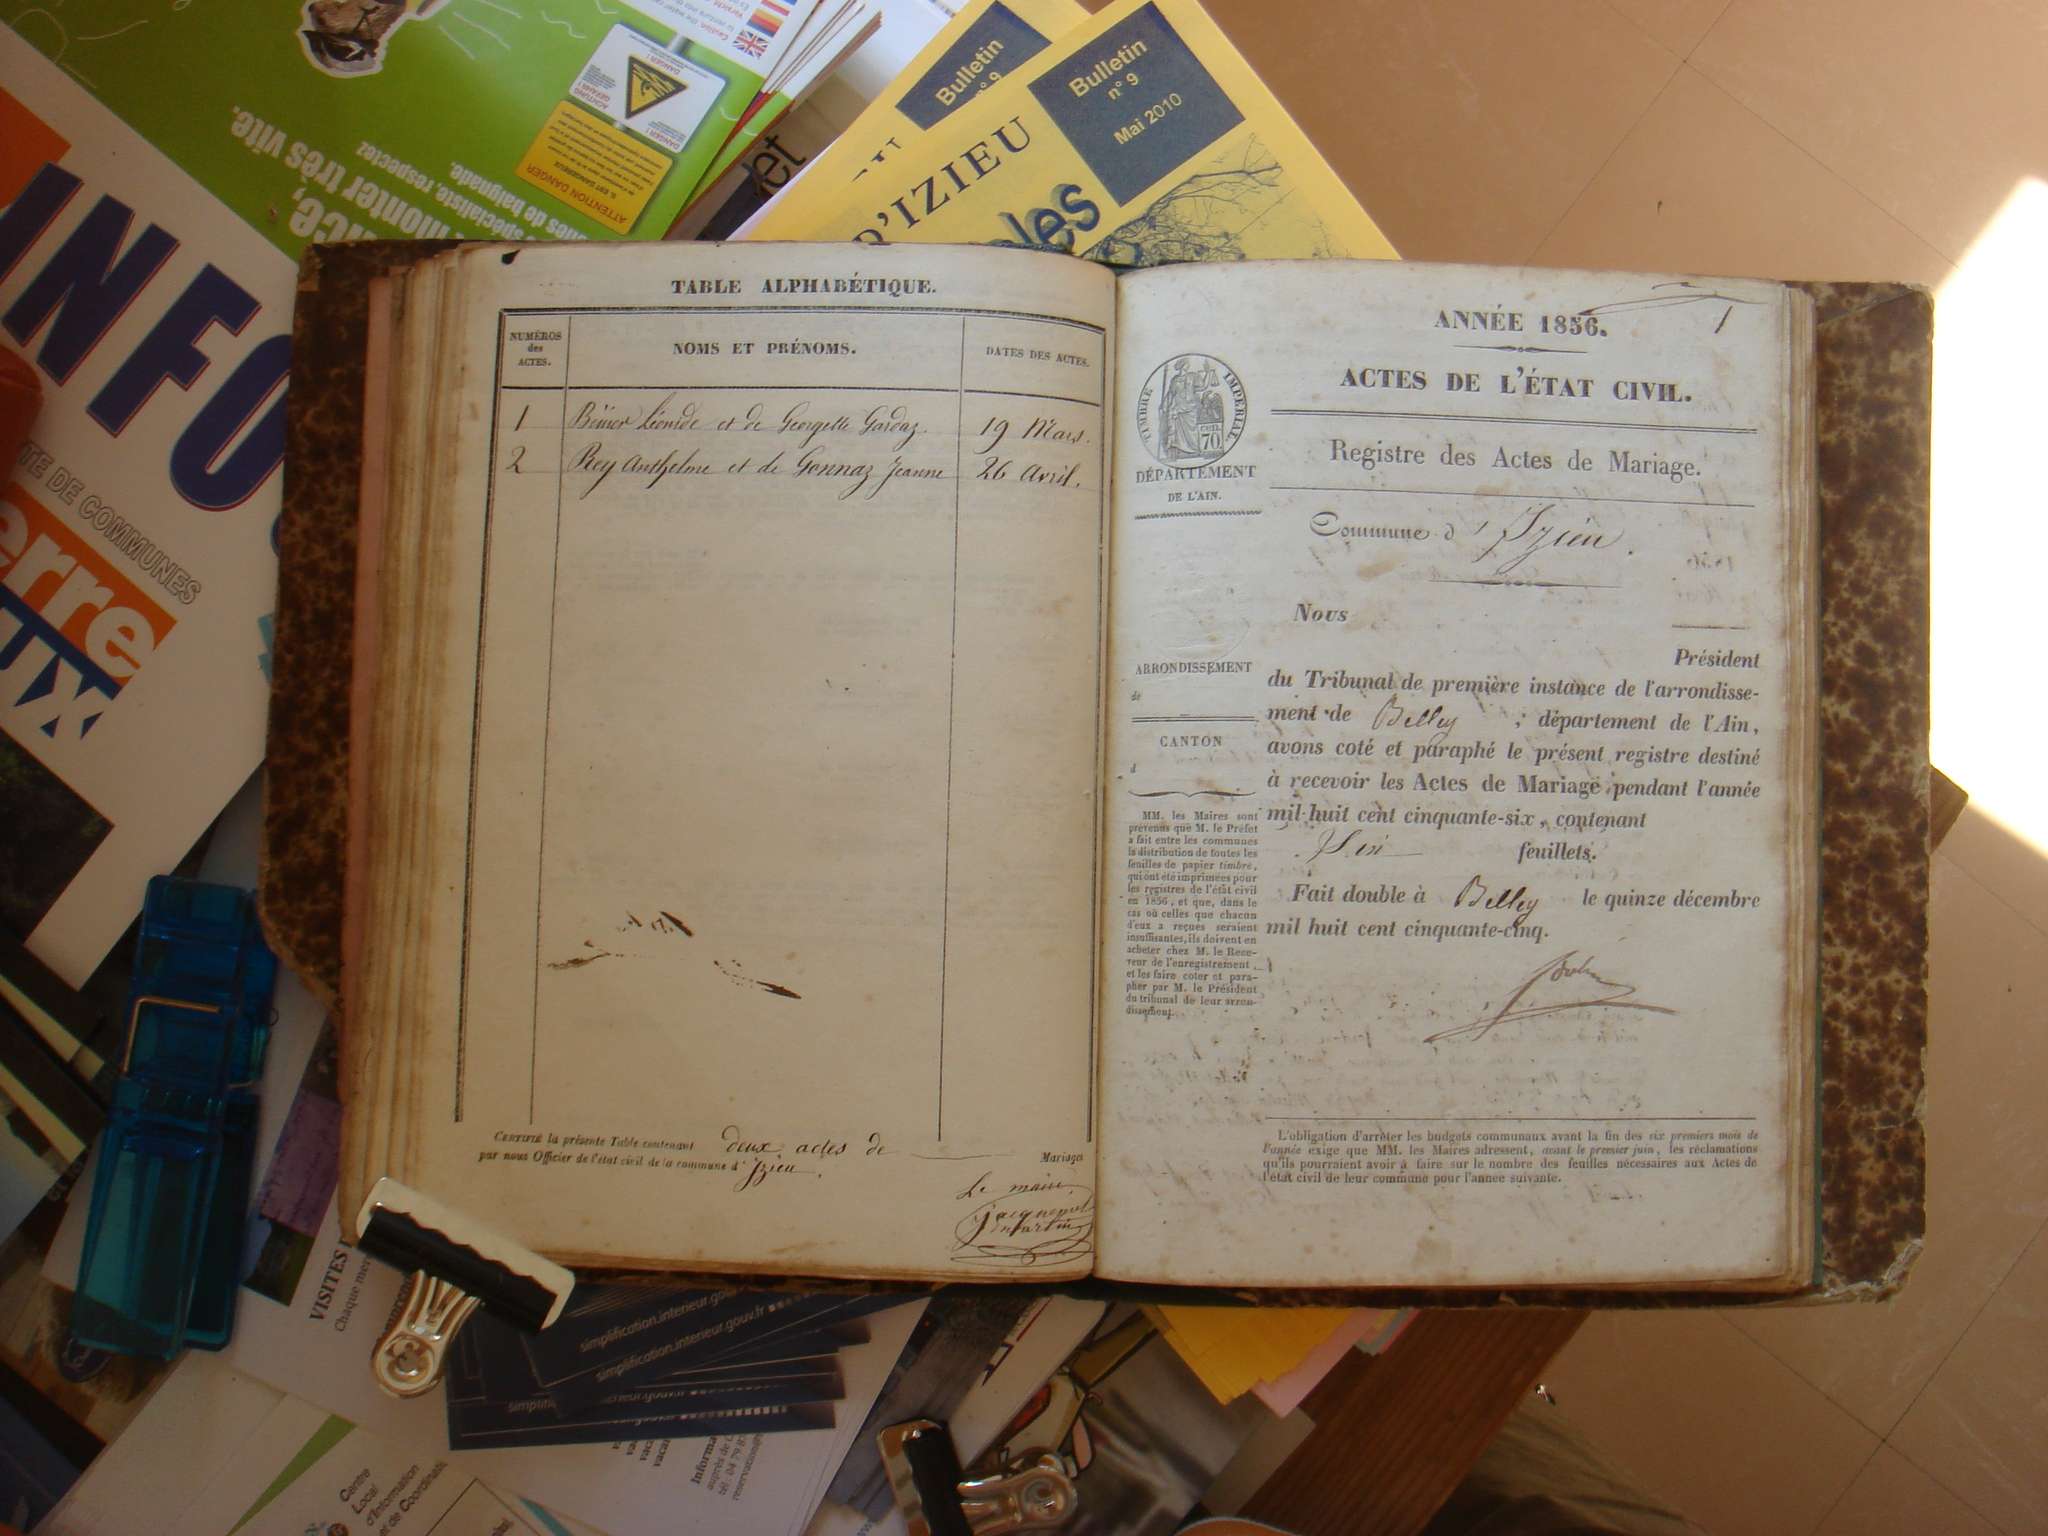 TABLE ALPHABÉTIQUE.
NUMÉROS des ACTES.
NOMS ET PRÉNOMS.
DATES DES ACTES.
1 Léonide et de Georgette Gardaz. 19 Mars.
2 Rey Anthelme et de Gonnaz Jeanne 26 Avril.
CERTIFIÉ la présente Table contenant deux actes de Mariages
par nous Officier de l'état civil de la commune d'Izieu.
Le maire,
ANNÉE 1856.
1
ACTES DE L'ÉTAT CIVIL.
TIMBRE IMPÉRIAL
CEN.
70
DÉPARTEMENT
DE L'AIN.
Registre des Actes de Mariage.
Commune d'Izieu.
Nous
Président
du Tribunal de première instance de l'arrondisse-
ment de Belley, département de l'Ain,
avons coté et paraphé le présent registre destiné
à recevoir les Actes de Mariage pendant l'année
mil huit cent cinquante-six, contenant
feuillets.
Fait double à Belley le quinze décembre
mil huit cent cinquante-cinq.
ARRONDISSEMENT
de
CANTON
d
MM. les Maires sont
prévenus que M. le Préfet
a fait entre les communes
la distribution de toutes les
feuilles de papier timbré,
qui ont été imprimées pour
les registres de l'état civil
en 1856, et que, dans le
cas où celles que chacun
d'eux a reçues seraient
insuffisantes, ils doivent en
acheter chez M. le Rece-
veur de l'enregistrement,
et les faire coter et para-
pher par M. le Président
du tribunal de leur arron-
dissement.
L'obligation d'arrêter les budgets communaux avant la fin des six premiers mois de
l'année exige que MM. les Maires adressent, avant le premier juin, les réclamations
qu'ils pourraient avoir à faire sur le nombre des feuilles nécessaires aux Actes de
l'état civil de leur commune pour l'année suivante.
Bulletin
n° 9
Bulletin
n° 9
Mai 2010
D'IZIEU
INFO
TE DE COMMUNES
erre
UX
monter très vite.
spécialiste, respectez
nes de baignade.
DANGER !
ATTENTION DANGER
VISITES
Chaque mer
simplification.interieur.gouv.fr
simplification.interieur.gouv.fr
Centre
Local
d'Information
et de Coordinati